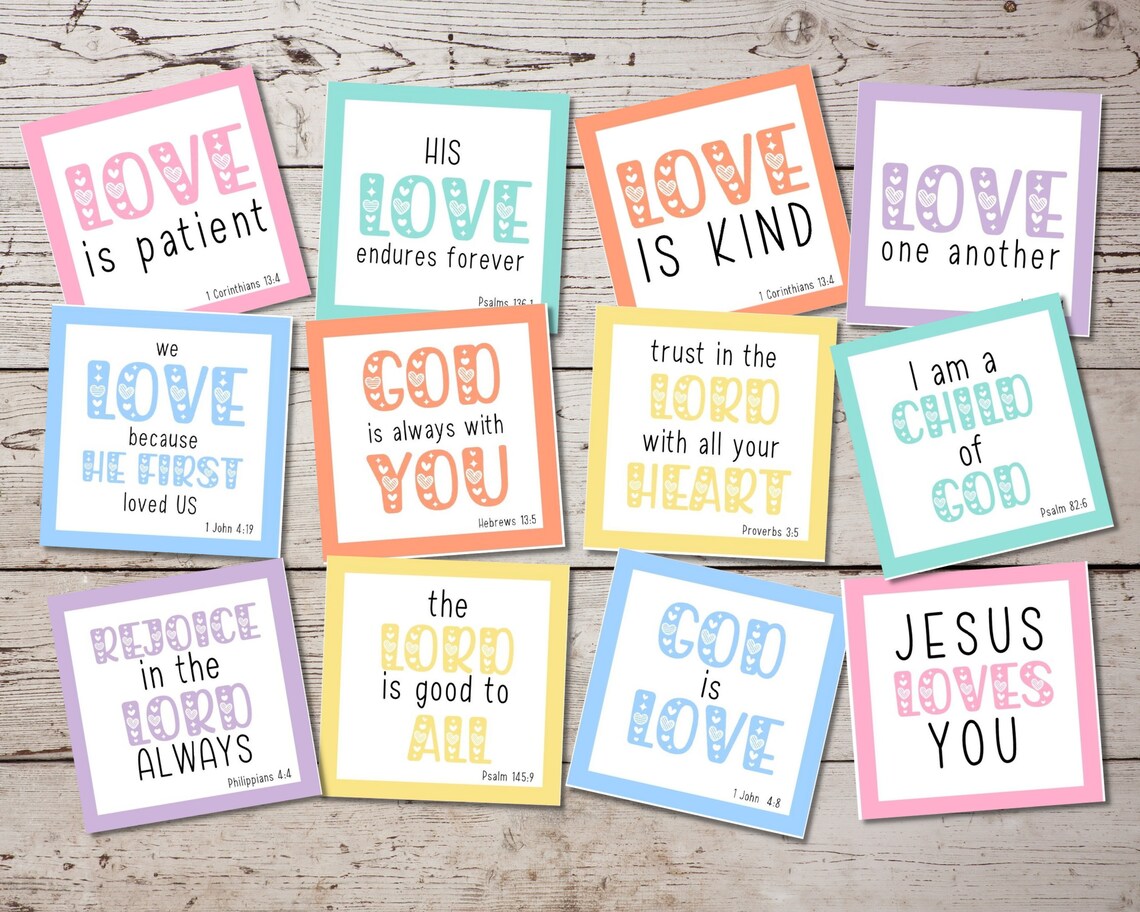 LOVE
is patient
1 Corinthians 13:4
HIS
LOVE
endures forever
Psalms 136:1
LOVE
IS KIND
1 Corinthians 13:4
LOVE
one another
we
LOVE
because
HE FIRST
loved US
1 John 4:19
GOD
is always with
YOU
Hebrews 13:5
trust in the
LORD
with all your
HEART
Proverbs 3:5
I am a
CHILD
of
GOD
Psalm 82:6
REJOICE
in the
LORD
ALWAYS
Philippians 4:4
the
LORD
is good to
ALL
Psalm 145:9
GOD
is
LOVE
1 John 4:8
JESUS
LOVES
YOU